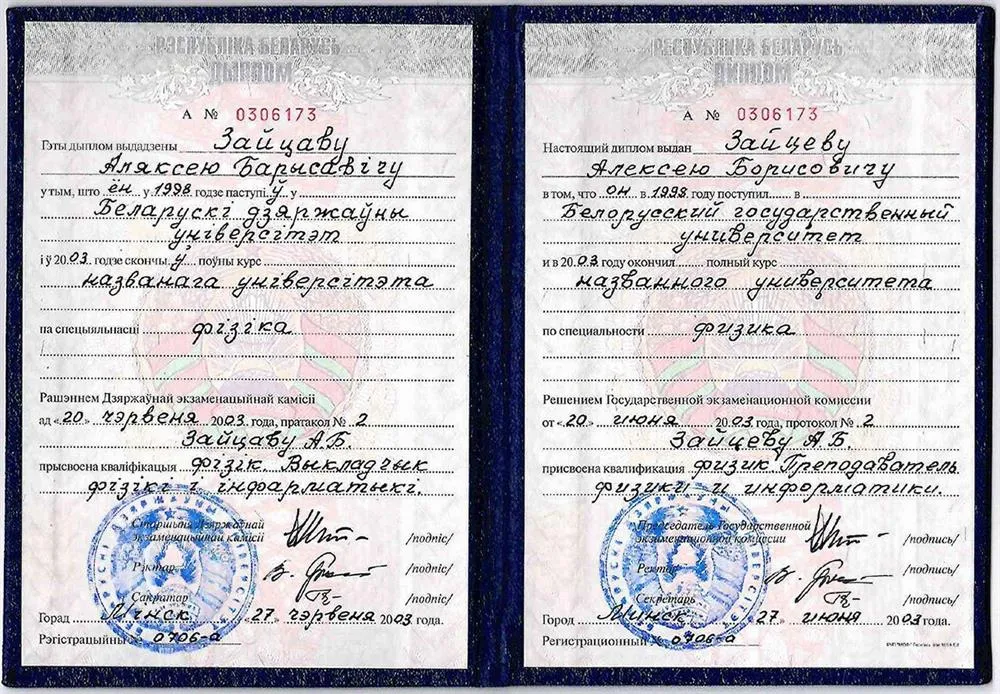 РЭСПУБЛІКА БЕЛАРУСЬ
ДЫПЛОМ
А № 0306173
Гэты дыплом выдадзены Зайцаву
Аляксею Барысавічу
у тым, што ён у 1998 годзе паступіў у
Беларускі дзяржаўны
універсітэт
і ў 2003 годзе скончыў поўны курс
названага універсітэта
па спецыяльнасці фізіка
Рашэннем Дзяржаўнай экзаменацыйнай камісіі
ад «20» чэрвеня 2003 года, пратакол № 2
Зайцаву А.Б.
прысвоена кваліфікацыя фізік. Выкладчык
фізікі і інфарматыкі.
Старшыня Дзяржаўнай
экзаменацыйнай камісіі /подпіс/
Рэктар /подпіс/
Сакратар /подпіс/
Горад Мінск «27» чэрвеня 2003 года.
Рэгістрацыйны № 0706-а
РЕСПУБЛИКА БЕЛАРУСЬ
ДИПЛОМ
А № 0306173
Настоящий диплом выдан Зайцеву
Алексею Борисовичу
в том, что он в 1998 году поступил в
Белорусский государственный
университет
и в 2003 году окончил полный курс
названного университета
по специальности физика
Решением Государственной экзаменационной комиссии
от «20» июня 2003 года, протокол № 2
Зайцеву А.Б.
присвоена квалификация физик. Преподаватель
физики и информатики.
Председатель Государственной
экзаменационной комиссии /подпись/
Ректор /подпись/
Секретарь /подпись/
Город Минск «27» июня 2003 года.
Регистрационный № 0706-а